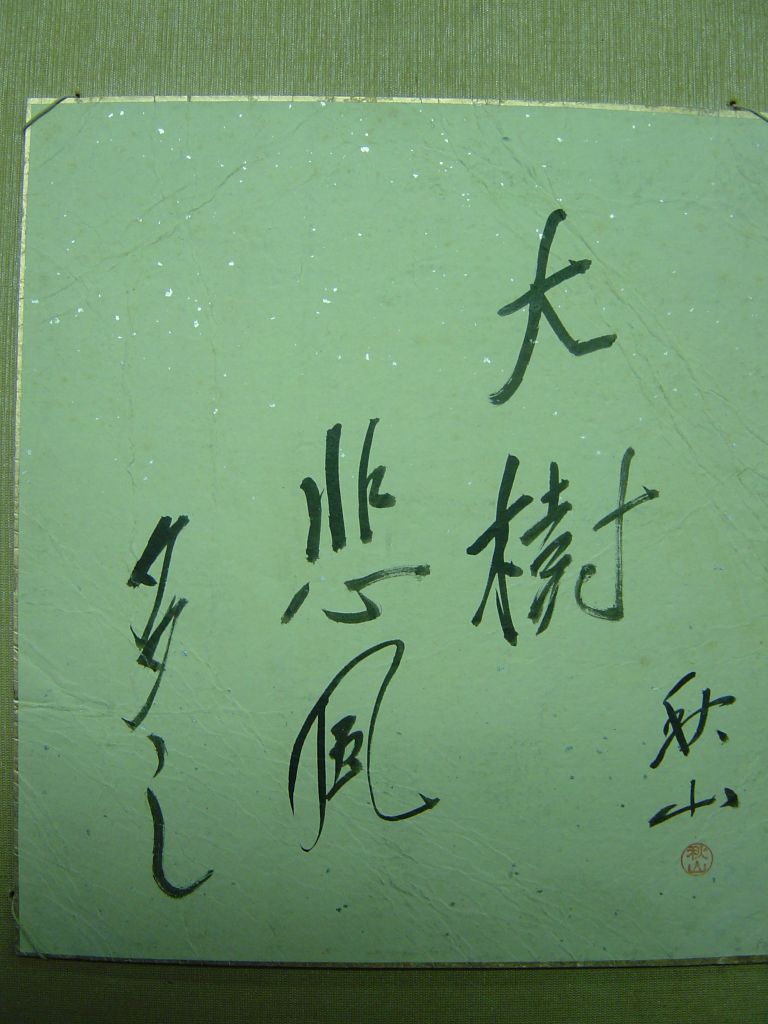 大樹
悲風
多し
秋山
秋山